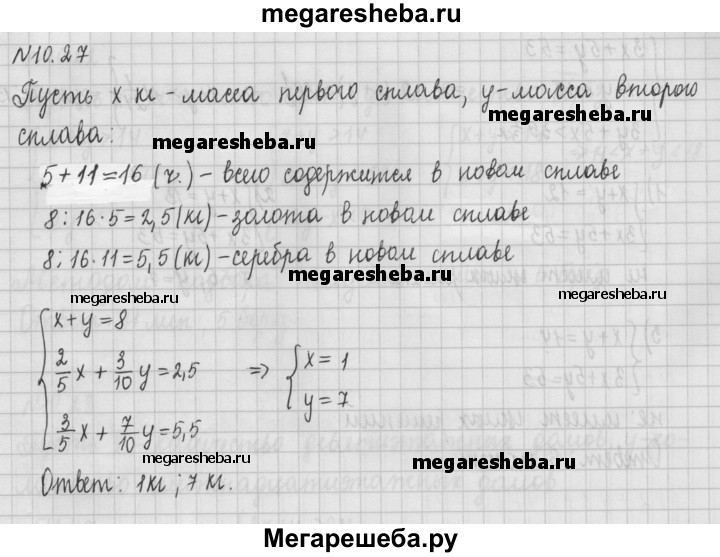 megaresheba.ru
N10.27
Пусть x кг - масса первого сплава, y - масса второго
megaresheba.ru
сплава.
megaresheba.ru
5+11=16 (ч.) - всего содержится в новом сплаве
8:16·5=2,5(кг) - золота в новом сплаве
8:16·11=5,5(кг) - серебра в новом сплаве
megaresheba.ru
megaresheba.ru
megaresheba.ru
{ x+y=8
2/5 x + 3/10 y = 2,5 => { x=1
y=7
3/5 x + 7/10 y = 5,5
megaresheba.ru
megaresheba.ru
Ответ: 1кг; 7 кг.
Мегарешеба.ру